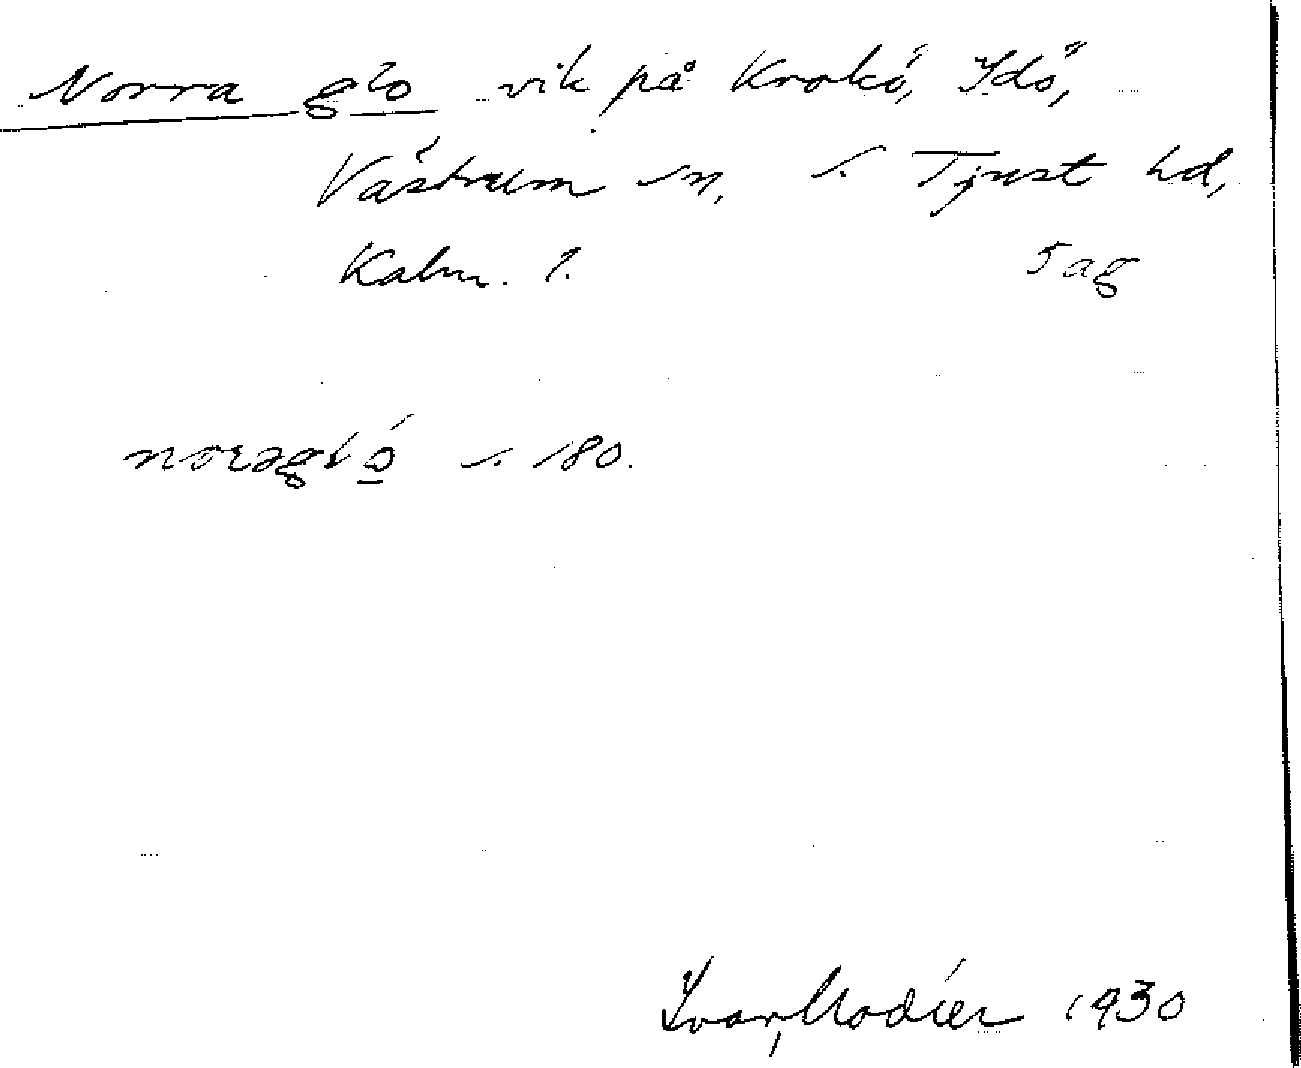 Norra glo vik på Krokö, Idö,
Västrum sn, s. Tjust hd,
Kalm. l. 5ag
s. 180.
Ivar Modéer 1930